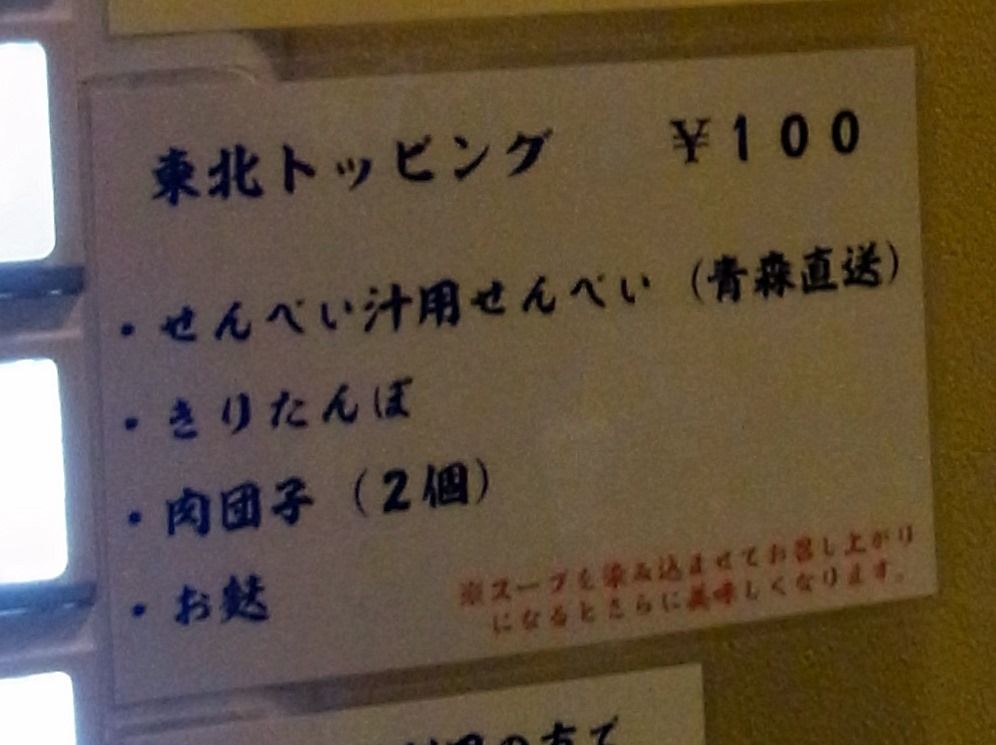 東北トッピング ¥100
・せんべい汁用せんべい(青森直送)
・きりたんぽ
・肉団子(2個)
・お麩
※スープを染み込ませてお召し上がり
になるとさらに美味しくなります。